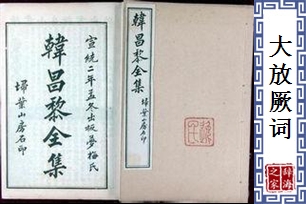 宣統二年孟冬出版夢梅氏
韓昌黎全集
掃葉山房石印
韓昌黎全集
掃葉山房石印
大放厥词
辞海
之家